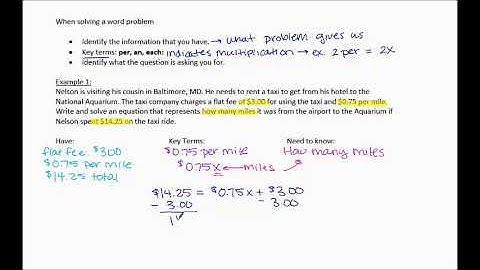 When solving a word problem
• Identify the information that you have. → what problem gives us
• Key terms: per, an, each: indicates multiplication → ex. 2 per = 2x
• identify what the question is asking you for.
Example 1:
Nelson is visiting his cousin in Baltimore, MD. He needs to rent a taxi to get from his hotel to the
National Aquarium. The taxi company charges a flat fee of $3.00 for using the taxi and $0.75 per mile.
Write and solve an equation that represents how many miles it was from the airport to the Aquarium if
Nelson spent $14.25 on the taxi ride.
Have: Key Terms: Need to know:
flat fee $3.00 $0.75 per mile How many miles
$0.75 per mile $0.75x ← miles
$14.25 total
$14.25 = $0.75x + $3.00
- 3.00 - 3.00
1